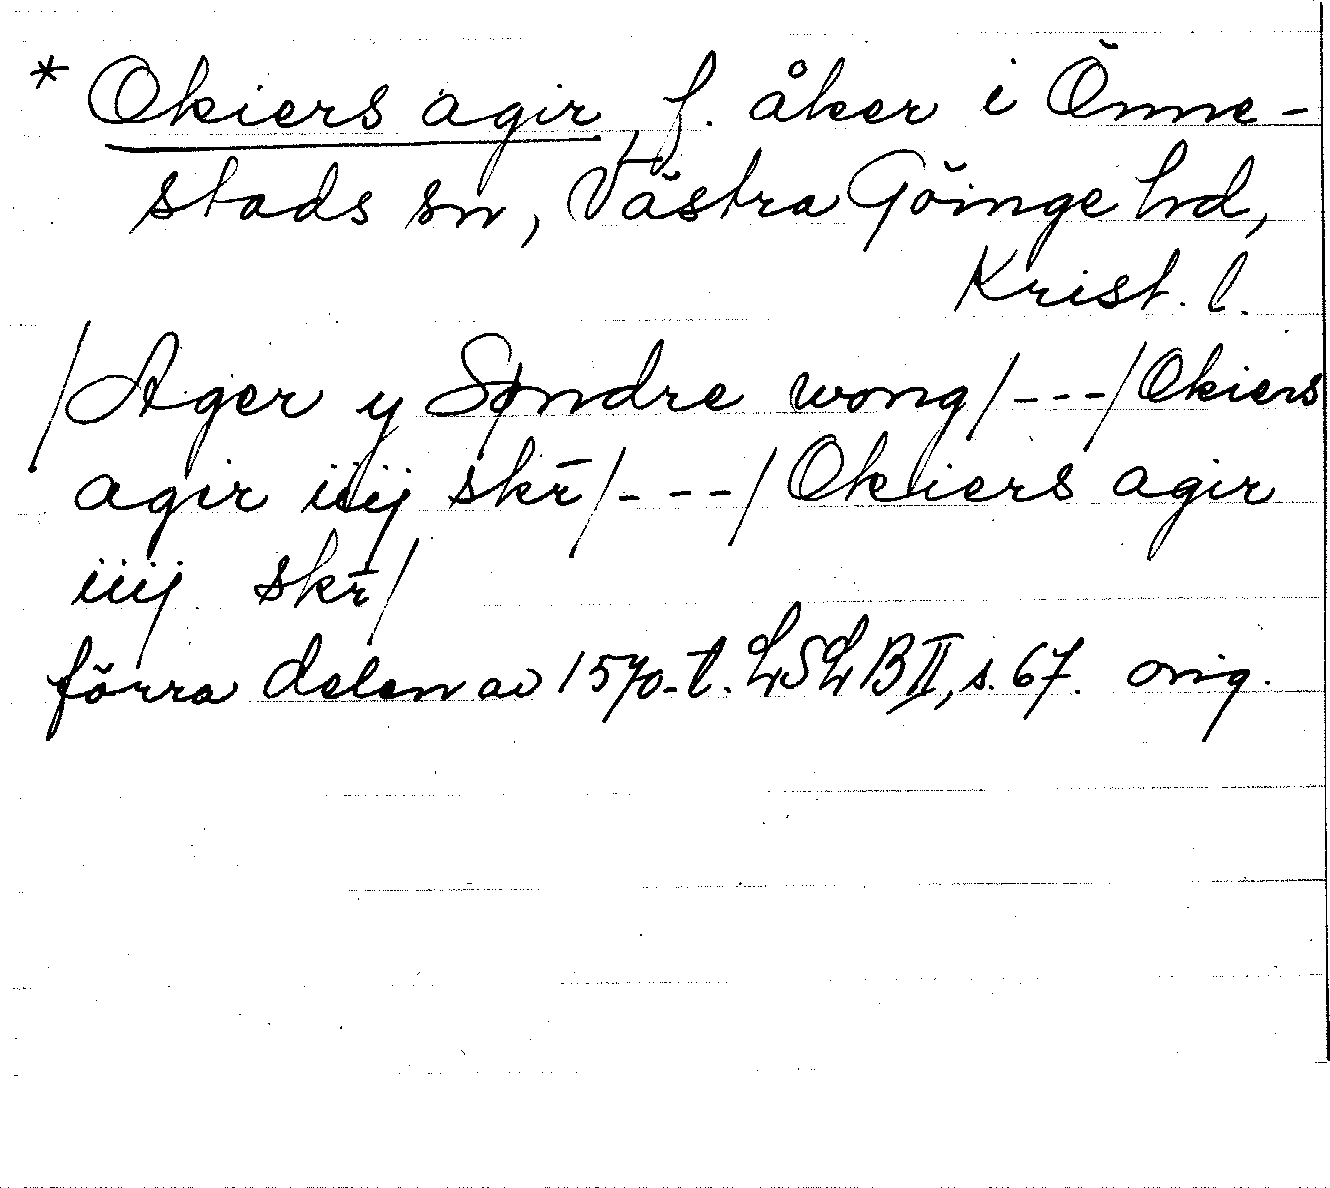 * Okiers agir, f. åker i Önne-
stads sn, Västra Göinge hd,
Krist. l.
/Ager y Søndre wong/---/Okiers
agir iiij skr̄/---/Okiers agir
iiij skr̄/
förra delen av 1570-t. LSLB II, s. 67. orig.